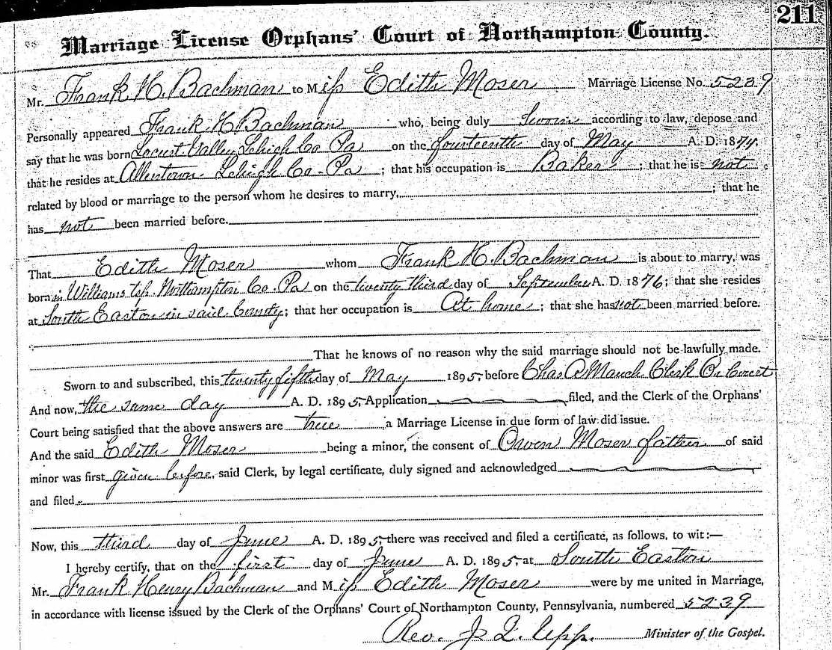 211
Marriage License Orphans' Court of Northampton County.
Mr. Frank H. Bachman to Miss Edith Moser Marriage License No. 5239
Personally appeared Frank H. Bachman who, being duly Sworn according to law, depose and
say that he was born Locust Valley Lehigh Co Pa on the fourteenth day of May A. D. 1874.
that he resides at Allentown Lehigh Co. Pa ; that his occupation is Baker ; that he is not
related by blood or marriage to the person whom he desires to marry, ; that he
has not been married before.
That Edith Moser whom Frank H. Bachman is about to marry, was
born in Williams tsp. Northampton Co. Pa on the twenty third day of September A. D. 1876; that she resides
at South Easton in said County; that her occupation is At home ; that she has not been married before.
That he knows of no reason why the said marriage should not be lawfully made.
Sworn to and subscribed, this twenty fifth day of May 1895, before Chas A Mauch Clerk Or Court
And now, the same day A. D. 1895, Application filed, and the Clerk of the Orphans'
Court being satisfied that the above answers are true a Marriage License in due form of law did issue.
And the said Edith Moser being a minor, the consent of Owen Moser father of said
minor was first given before, said Clerk, by legal certificate, duly signed and acknowledged
and filed.
Now, this third day of June A. D. 1895, there was received and filed a certificate, as follows, to wit:—
I hereby certify, that on the first day of June A. D. 1895, at South Easton
Mr. Frank Henry Bachman and Miss Edith Moser were by me united in Marriage,
in accordance with license issued by the Clerk of the Orphans' Court of Northampton County, Pennsylvania, numbered 5239
Rev. J. Q. Upp. Minister of the Gospel.